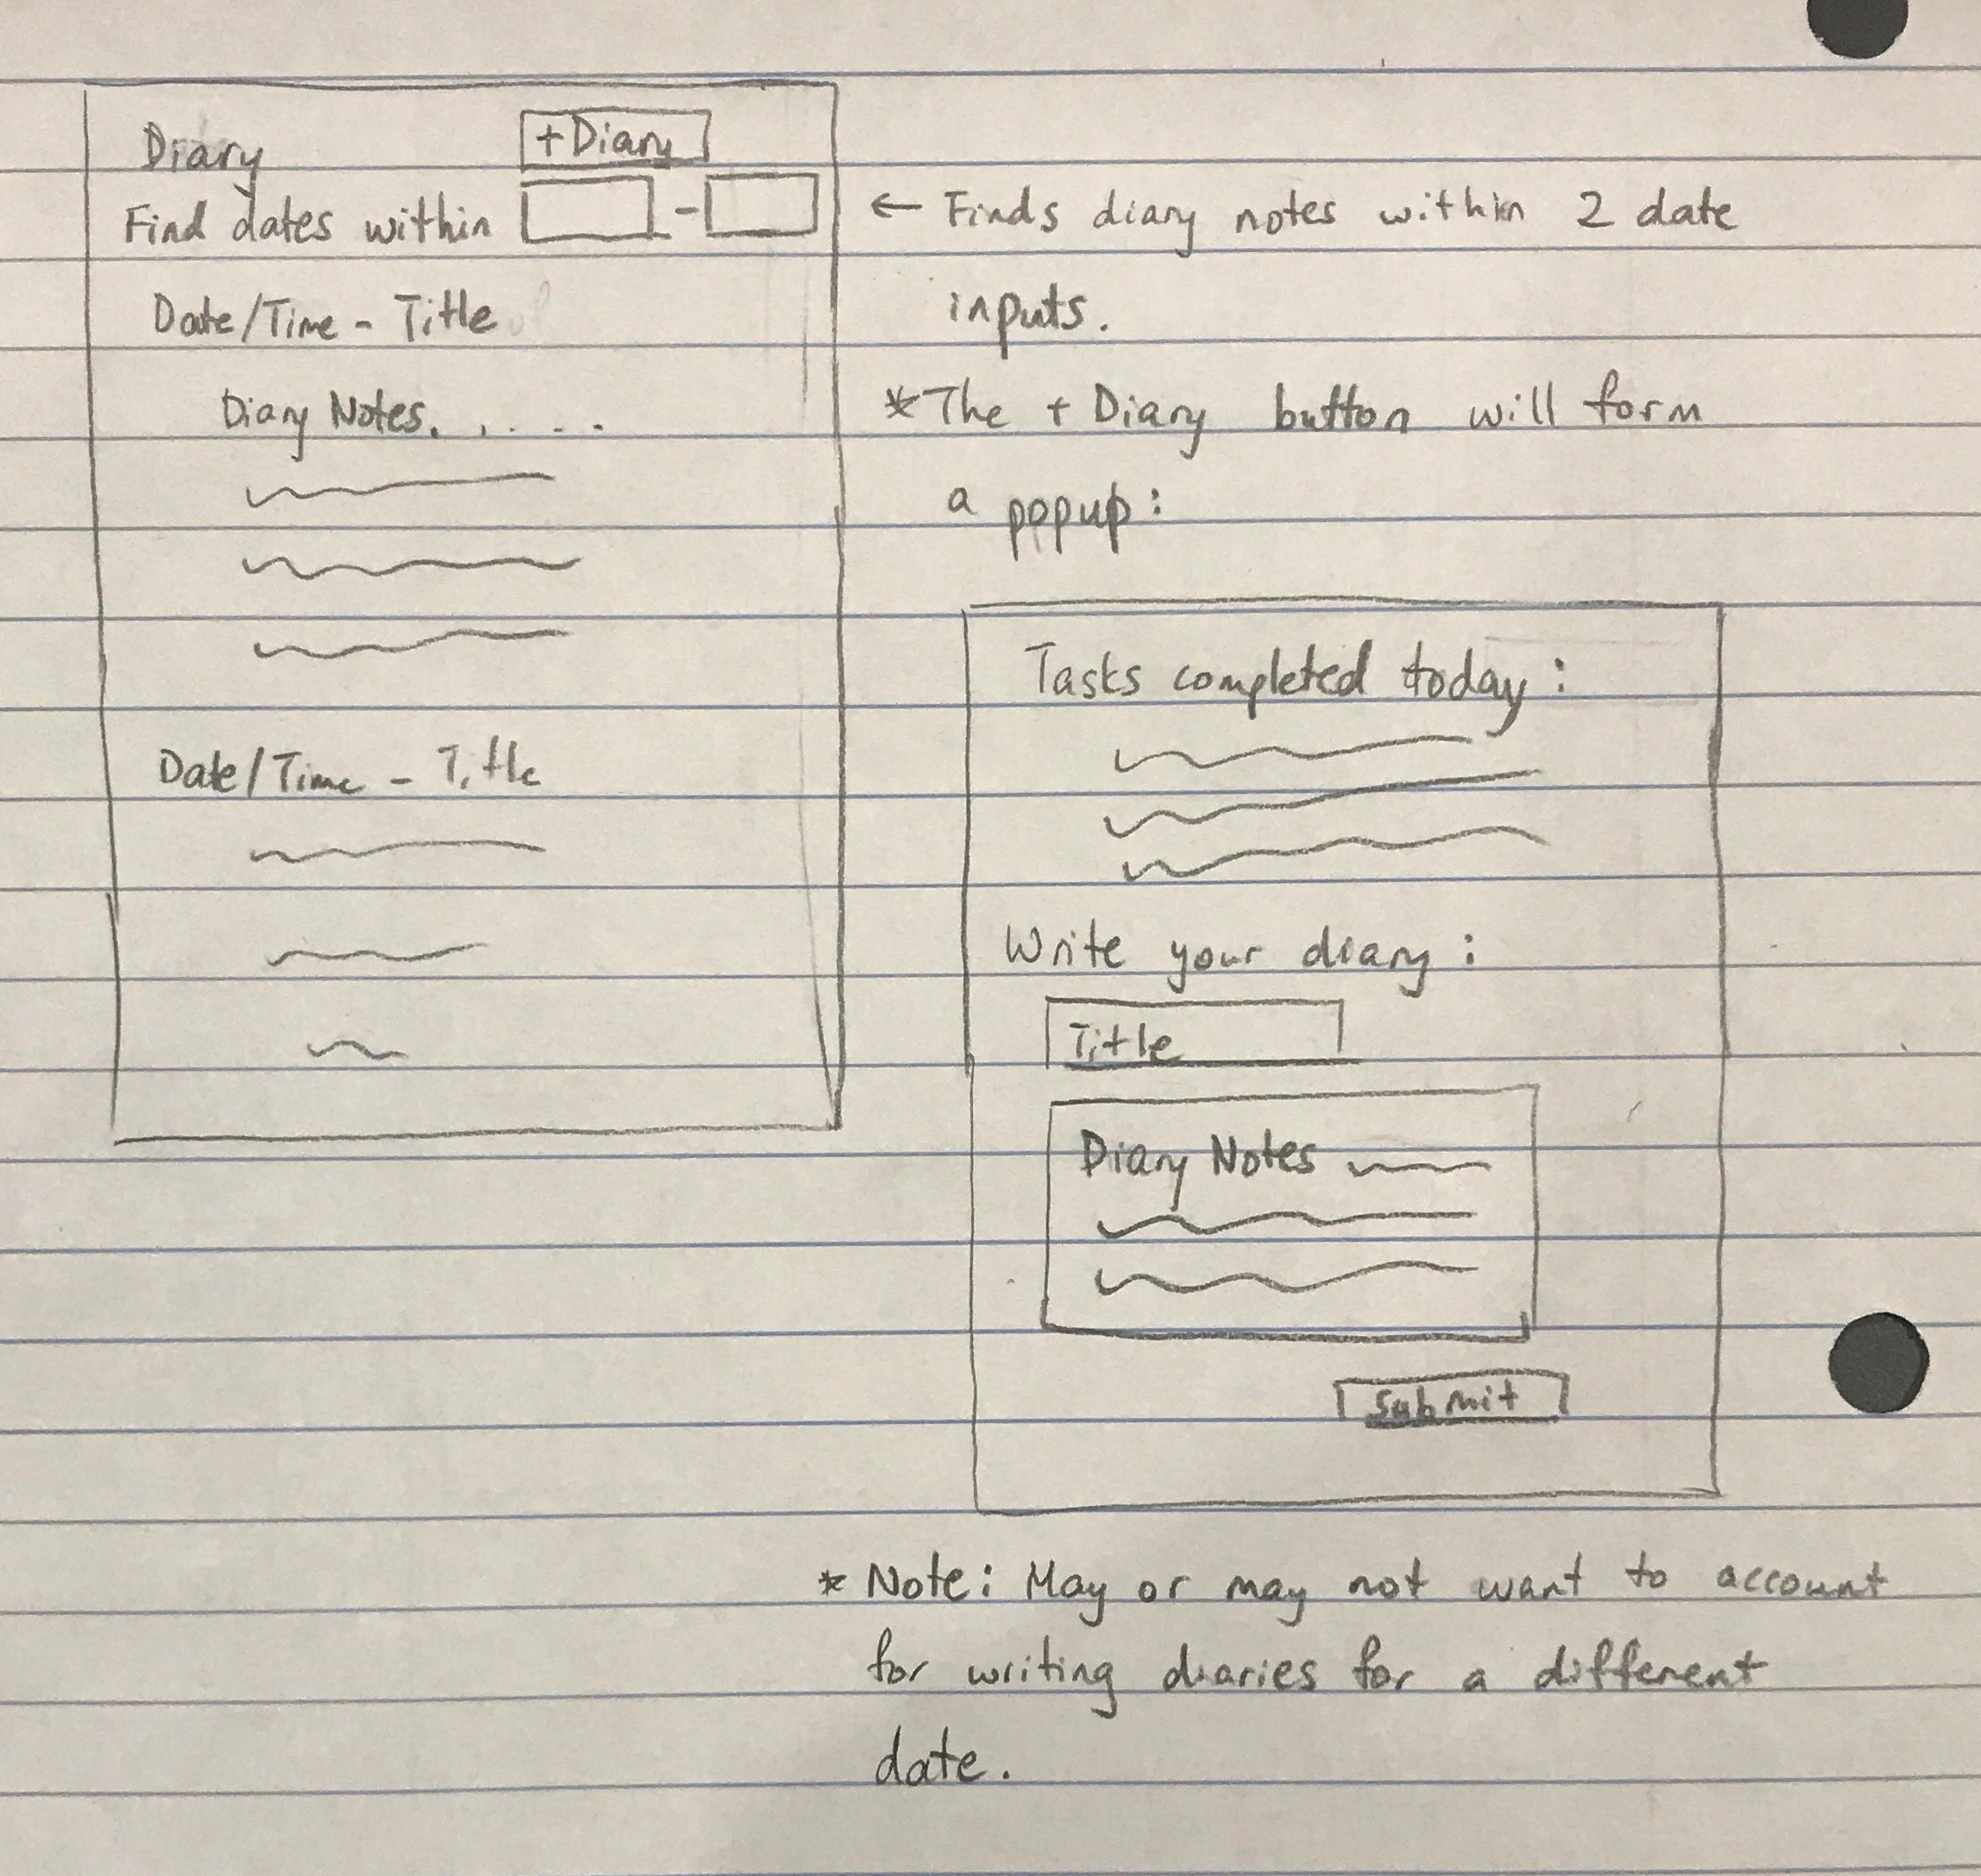 Diary +Diary
Find dates within -
Date/Time - Title
Diary Notes. . . . .
Date/Time - Title
← Finds diary notes within 2 date
inputs.
* The + Diary button will form
a popup:
Tasks completed today:
Write your diary:
Title
Diary Notes
Submit
* Note: May or may not want to account
for writing diaries for a different
date.